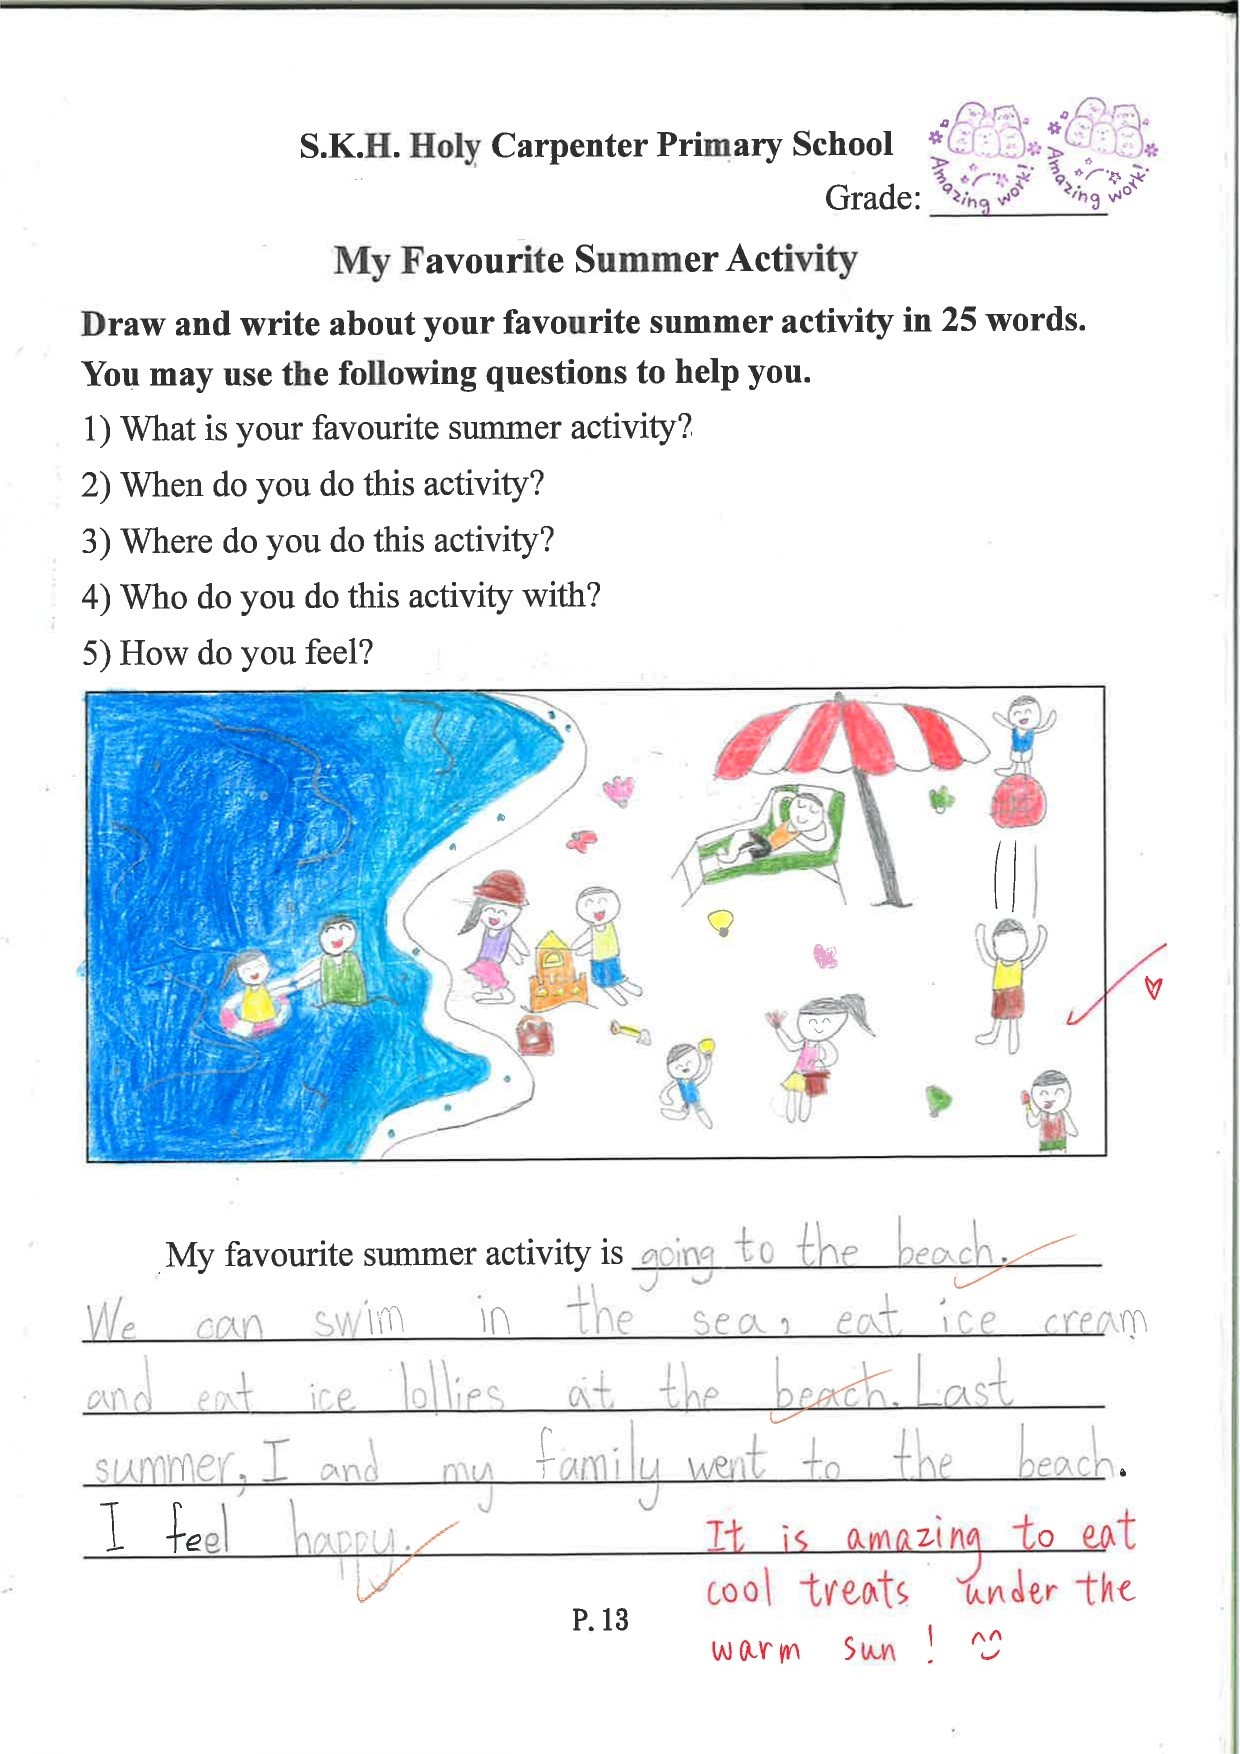 S.K.H. Holy Carpenter Primary School
Amazing work! Amazing work!
Grade:
My Favourite Summer Activity
Draw and write about your favourite summer activity in 25 words.
You may use the following questions to help you.
1) What is your favourite summer activity?
2) When do you do this activity?
3) Where do you do this activity?
4) Who do you do this activity with?
5) How do you feel?
My favourite summer activity is going to the beach.
We can swim in the sea, eat ice cream
and eat ice lollies at the beach. Last
summer, I and my family went to the beach.
I feel happy.
It is amazing to eat
cool treats under the
warm sun!
P. 13